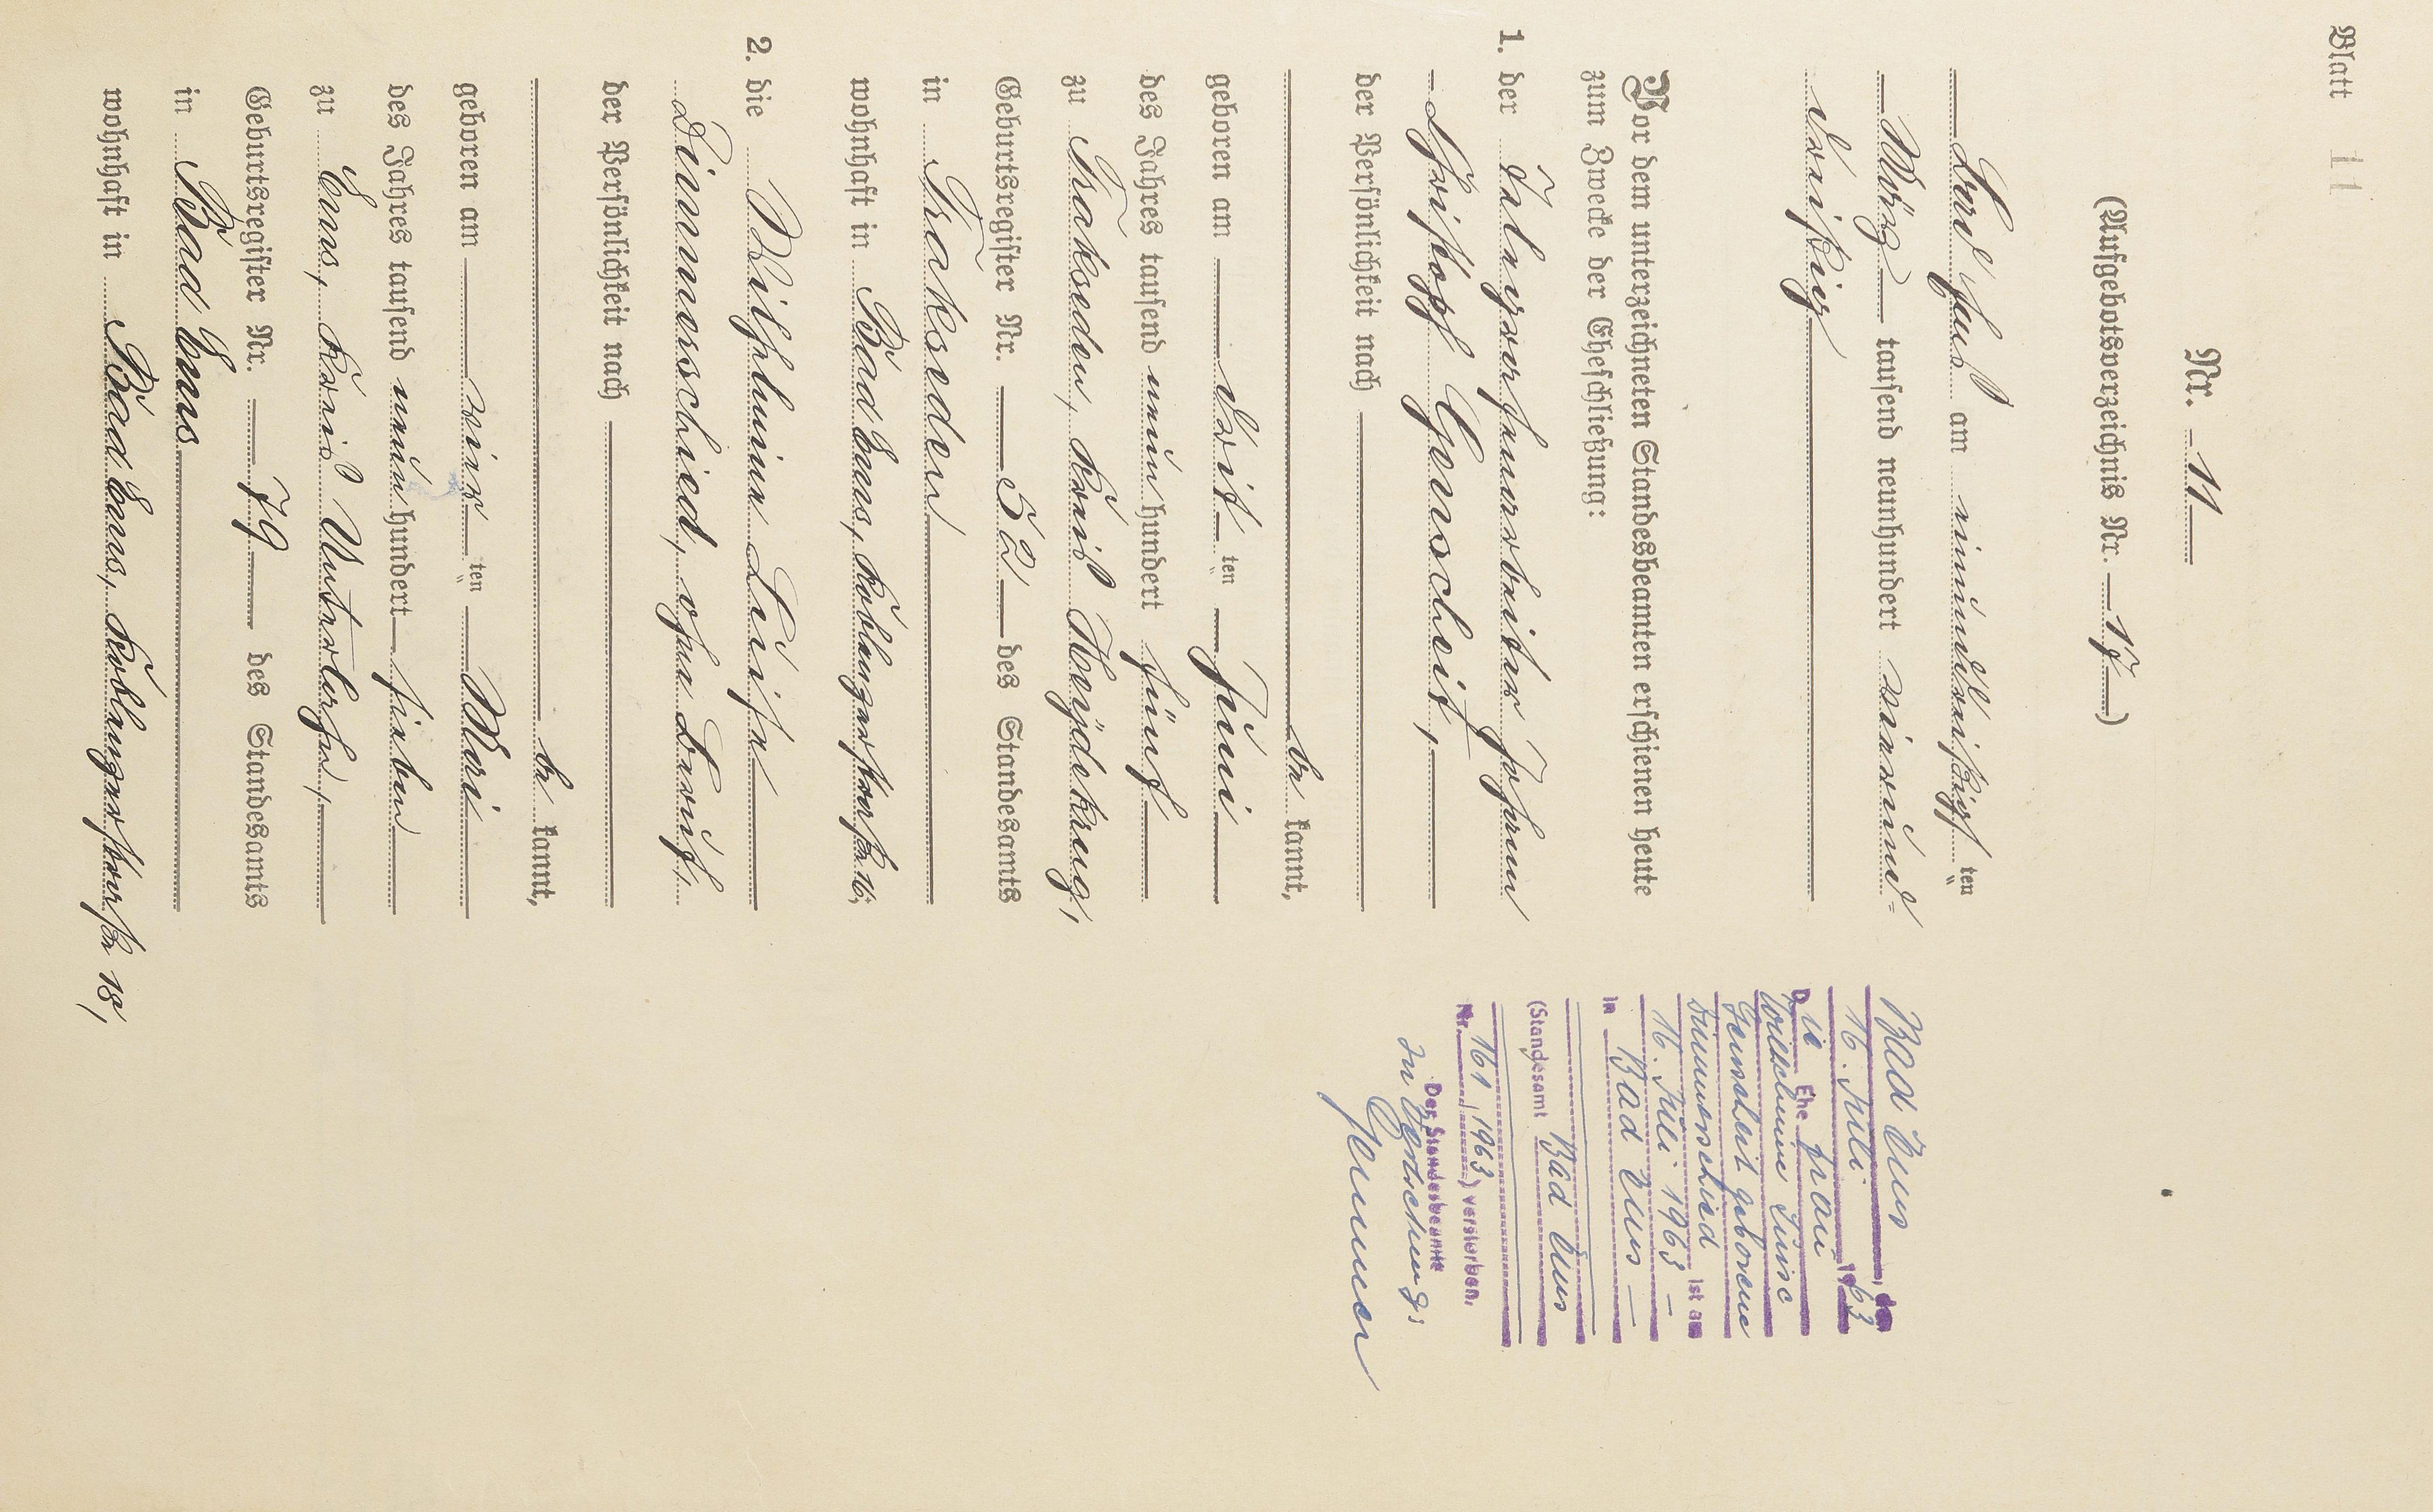 Blatt 11
Nr. 11
(Aufgebotsverzeichnis Nr. 17)
Bad Ems am einunddreißigsten
März tausend neunhundert vierund-
dreißig
Vor dem unterzeichneten Standesbeamten erschienen heute
zum Zwecke der Eheschließung:
1. der Telegraphenarbeiter Johann
Christoph Genscheit,
der Persönlichkeit nach
be kannt,
geboren am dritten Juni
des Jahres tausend neunhundert fünf
zu Trakseden, Kreis Heydekrug,
Geburtsregister Nr. 52 des Standesamts
in Trakseden
wohnhaft in Bad Ems, Koblenzerstraße 16;
2. die Wilhelmine Luise
Dimmerschied, ohne Beruf,
der Persönlichkeit nach
be kannt,
geboren am vierten Mai
des Jahres tausend neunhundert sieben
zu Ems, Kreis Unterlahn,
Geburtsregister Nr. 79 des Standesamts
in Bad Ems
wohnhaft in Bad Ems, Koblenzerstraße 18,
Bad Ems, den
16. Juli 1963
Die Ehe frau
Wilhelmine Luise
Genscheit geborene
Dimmerschied ist am
16. Juli 1963
in Bad Ems
(Standesamt Bad Ems
Nr. 161 / 1963) verstorben.
Der Standesbeamte
In Vertretung: